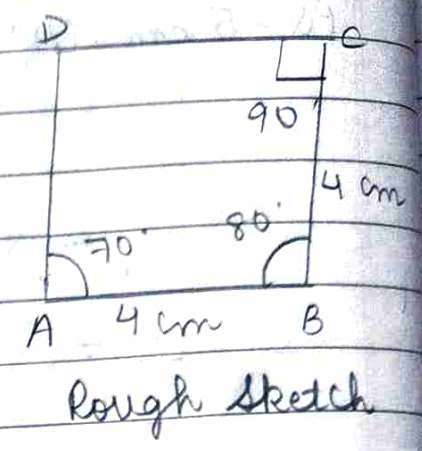 D C
90°
4 cm
70° 80°
A 4 cm B
Rough Sketch